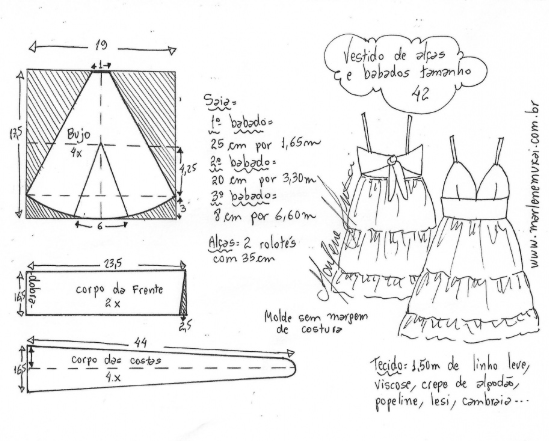 Vestido de alças
e babados tamanho
42
www.marlenemukai.com.br
19
1
17,5
Bujo
4x
4,25
3
6
Saia=
1º babado=
25 cm por 1,65m
2º babado=
20 cm por 3,30m
3º babado=
8 cm por 6,60m
Alças: 2 rolotés
com 35cm
Marlene Mukai
23,5
dobra
16,5
corpo da Frente
2x
2,5
Molde sem margem
de costura
44
16,5
corpo das costas
4x
Tecido: 1,50m de linho leve,
viscose, crepo de algodão,
popeline, lesi, cambraia...